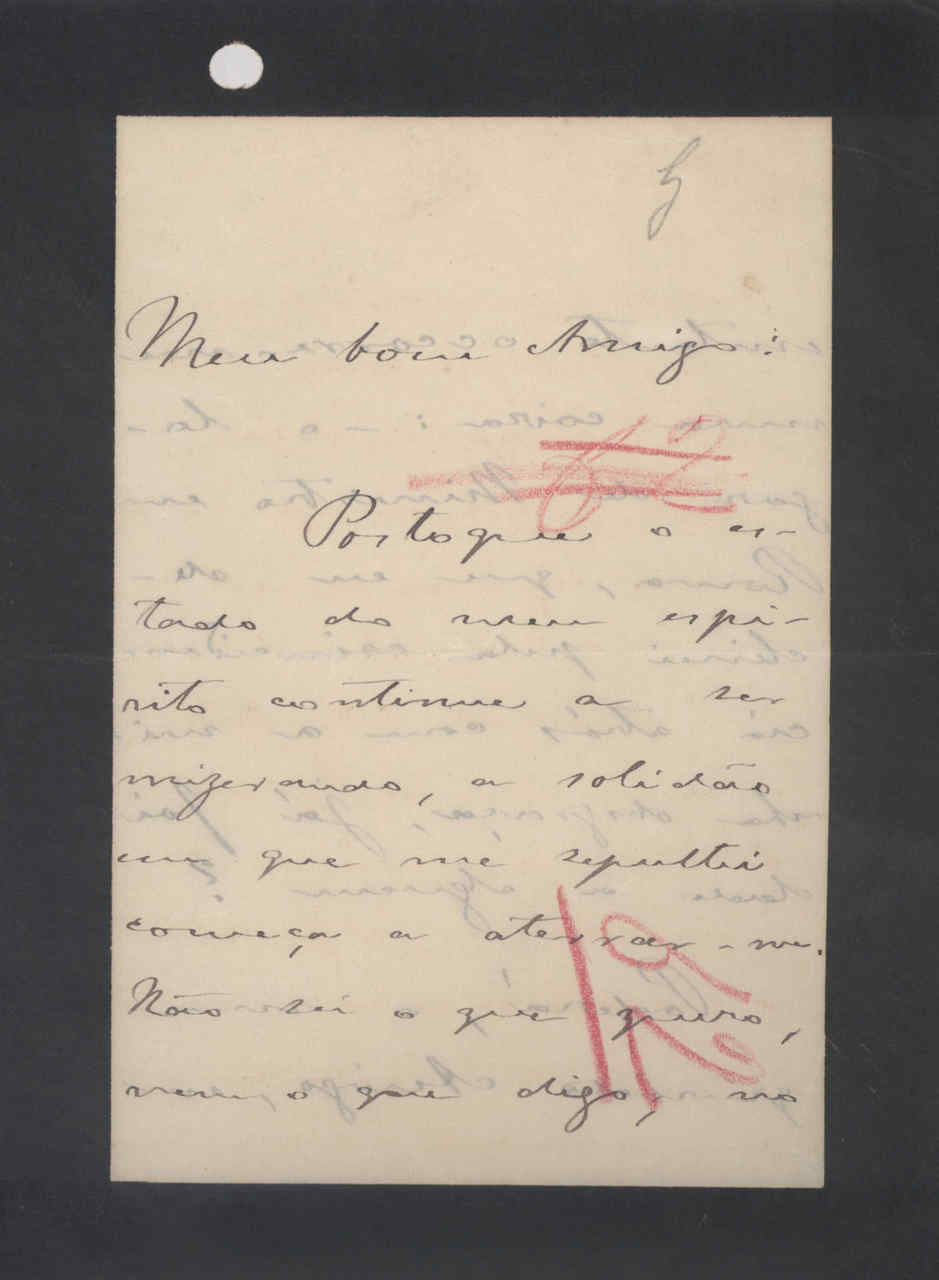 Meu bom Amigo:
Postoque o es-
tado do meu espi-
rito continue a ser
mizerando, a solidão
em que me sepultei
começa a aterrar-me.
Não sei o que quero,
nem o que digo, no